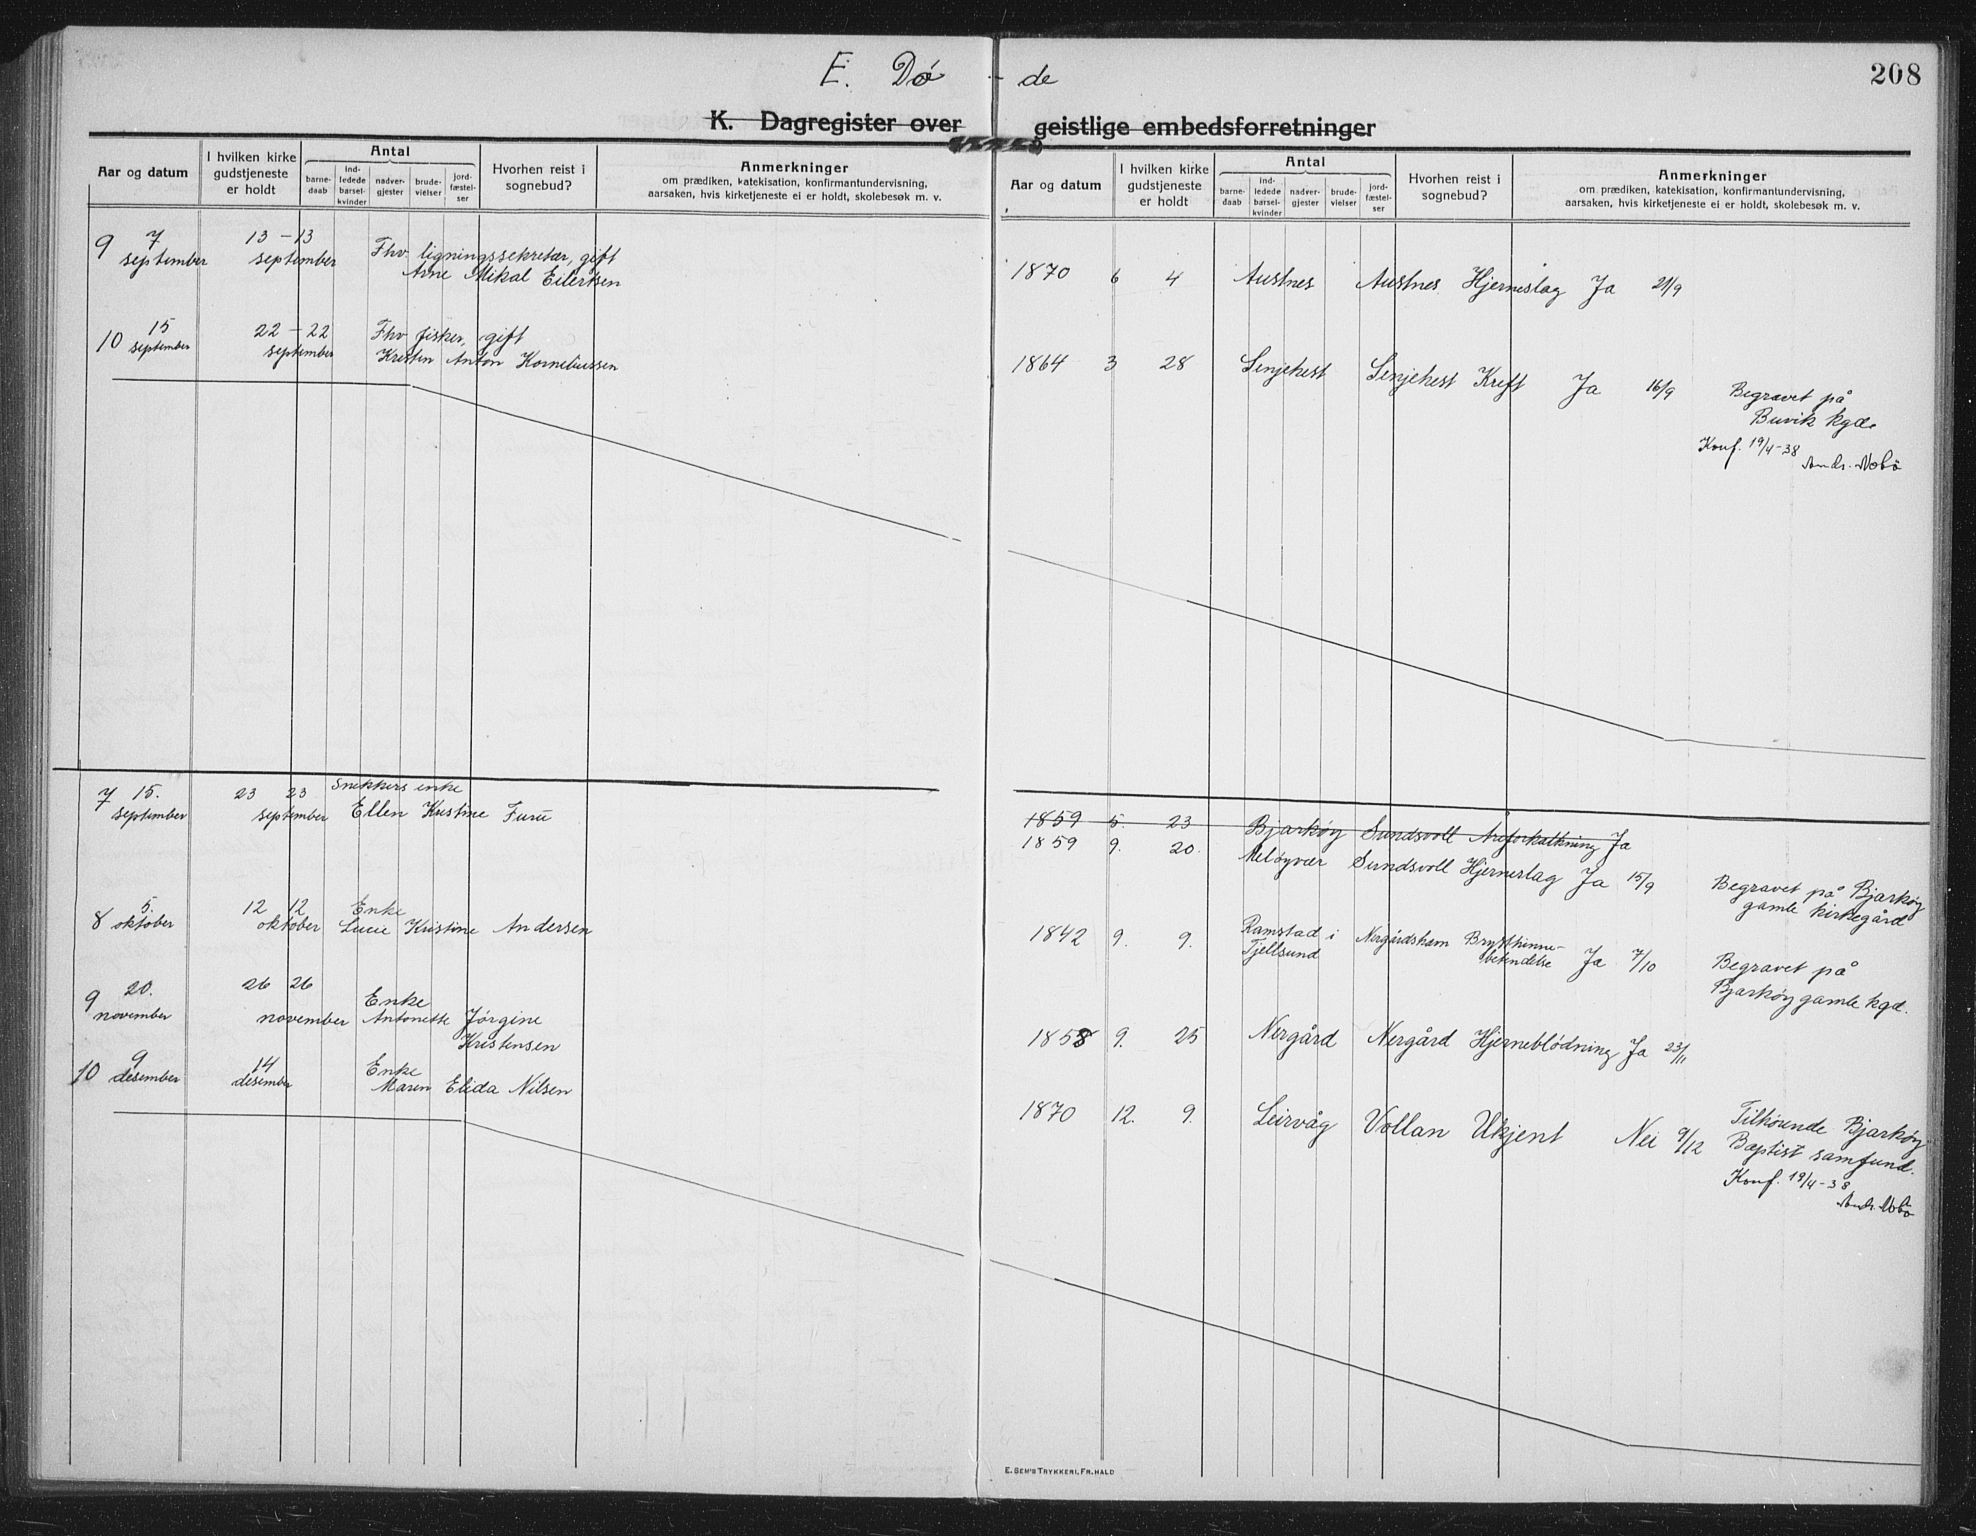 E. Dø - de
208
K. Dagregister over geistlige embedsforretninger
Aar og datum
I hvilken kirke gudstjeneste er holdt
Antal
barne-daab
ind-ledede barsel-kvinder
nadver-gjester
brude-vielser
jord-fæstel-ser
Hvorhen reist i sognebud?
Anmerkninger
om prædiken, katekisation, konfirmantundervisning,
aarsaken, hvis kirketjeneste ei er holdt, skolebesøk m. v.
Aar og datum
I hvilken kirke gudstjeneste er holdt
Antal
barne-daab
ind-ledede barsel-kvinder
nadver-gjester
brude-vielser
jord-fæstel-ser
Hvorhen reist i sognebud?
Anmerkninger
om prædiken, katekisation, konfirmantundervisning,
aarsaken, hvis kirketjeneste ei er holdt, skolebesøk m. v.
9 7 september 13 - 13 september Fhv. ligningssekretær, gift
Arne Mikal Eilertsen
1870 6 4 Austnes Austnes Hjerneslag Ja 21/9
10 15 september 22 - 22 september Fhv fisker, gift
Kristen Anton Korneliussen
1864 3 28 Senjehest Senjehest Kreft Ja 16/9 Begravet på
Buvik kgd.
Konf. 19/4-38
Andr. Nobø
7 15. september 23 23 september Snekkers enke
Ellen Kristine Furu
1859 5. 23 Bjarkøy Sundsvoll Åreforkalkning Ja
1859 9. 20. Meløyvær Sundsvoll Hjerneslag Ja 15/9 Begravet på Bjarkøy
gamle kirkegård
8 5. oktober 12 12 oktober Enke
Lucie Kristine Andersen
1842 9. 9. Ramstad i Tjellsund Nergårdsham Brysthinne-
betendelse Ja 7/10 Begravet på
Bjarkøy gamle kgd.
9 20. november 26 26 november Enke
Antonette Jørgine
Kristensen
1858 9. 25 Nergård Nergård Hjerneblödning Ja 23/11
10 9 desember 14 desember Enke
Maren Elida Nilsen
1870 12. 9. Leirvåg Vollan Ukjent Nei 9/12 Tilhørende Bjarkøy
Baptist samfund.
Konf. 19/4-38
Andr. Nobø
E. SEM'S TRYKKERI, FR.HALD